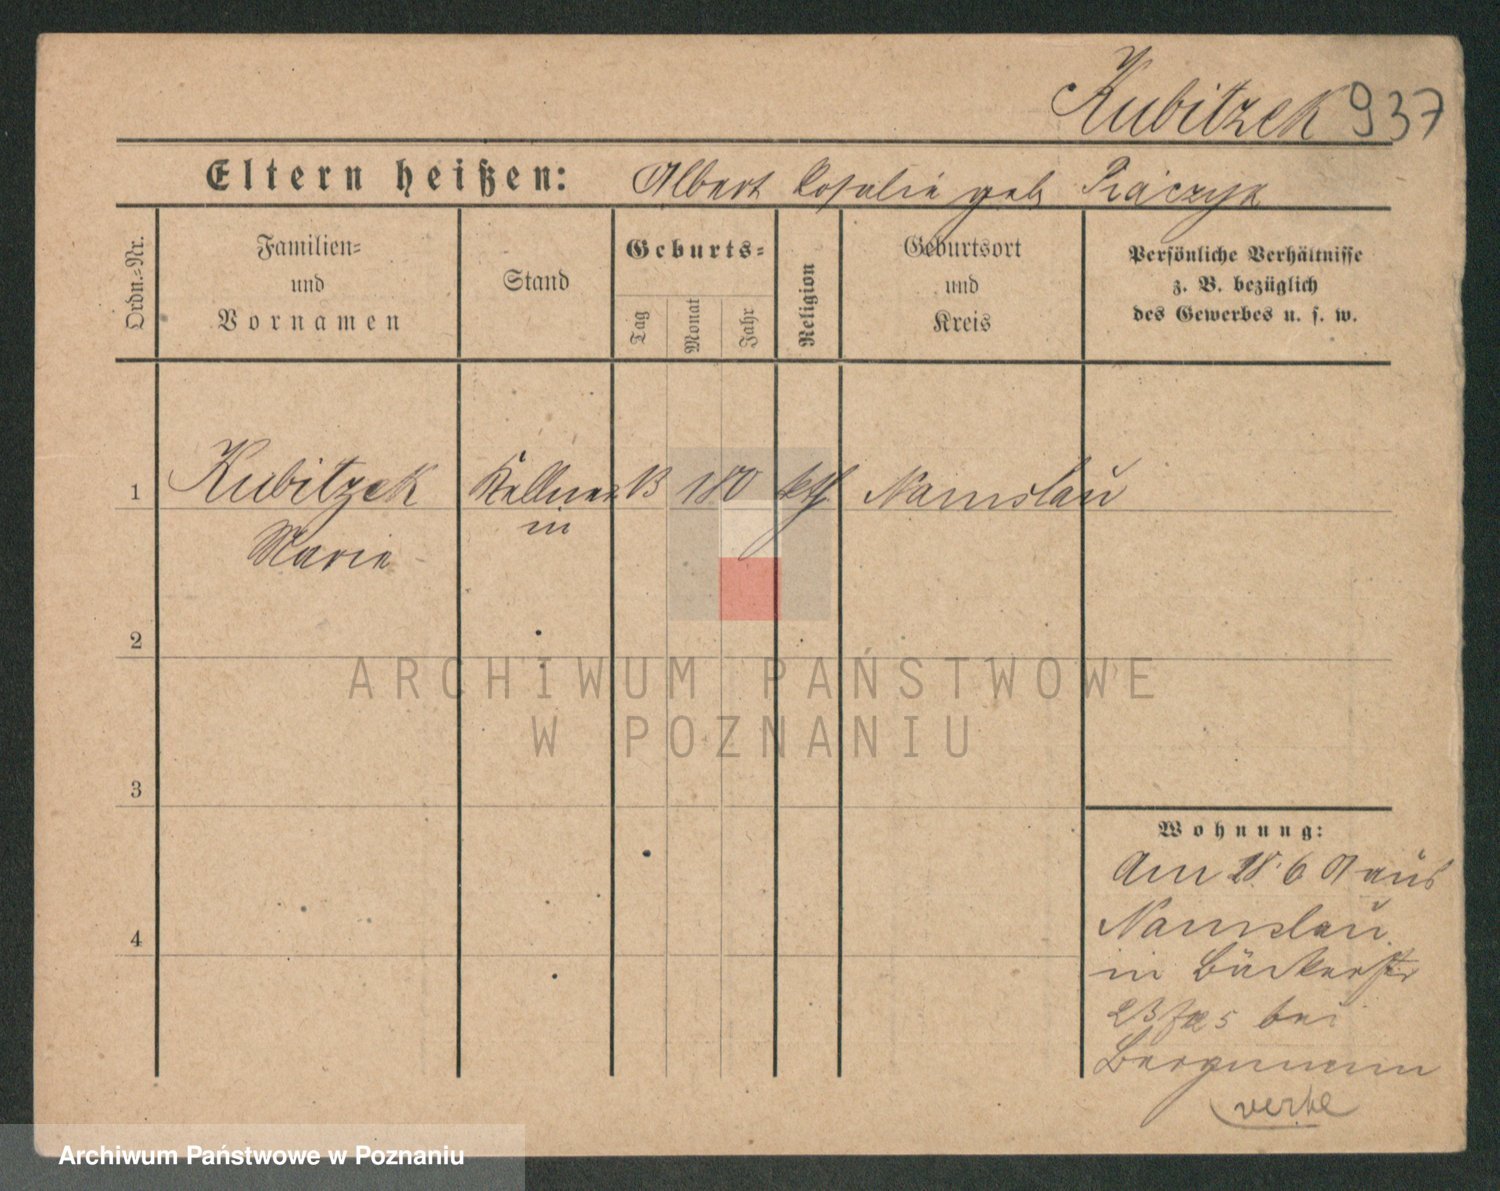 Kubitzek 937
Eltern heißen: Albert Rosalie geb Piaczyk
Ordn.-Nr.
Familien-
und
Vornamen
Stand
Geburts-
Tag
Monat
Jahr
Religion
Geburtsort
und
Kreis
Persönliche Verhältnisse
z. B. bezüglich
des Gewerbes u. s. w.
1 Kubitzek Kellner 13 180 kth Namslau
in
Marie
2
ARCHIWUM PAŃSTWOWE
W POZNANIU
3
Wohnung:
Am 28. 6 01 aus
Namslau
4
in Bäckerstr
23 bei
Bergmann
Archiwum Państwowe w Poznaniu